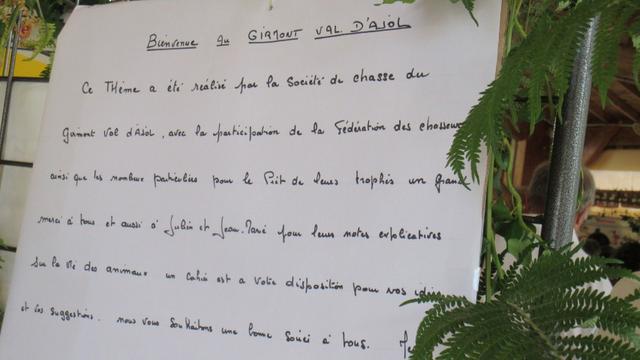 Bienvenue au GIRMONT VAL. D'AJOL
Ce Thème a été réalisé par la Société de chasse du
Girmont Val d'Ajol, avec la participation de la Fédération des chasseurs
ainsi que les nombeux particuliers pour le Prêt de leurs trophés un Grand
merci à tous et aussi à Julien et Jean.Marie pour leurs notes explicatives
Sur la vie des animaux un cahier est a votre disposition pour vos idées
et vos suggestions. nous vous Souhaitons une bonne